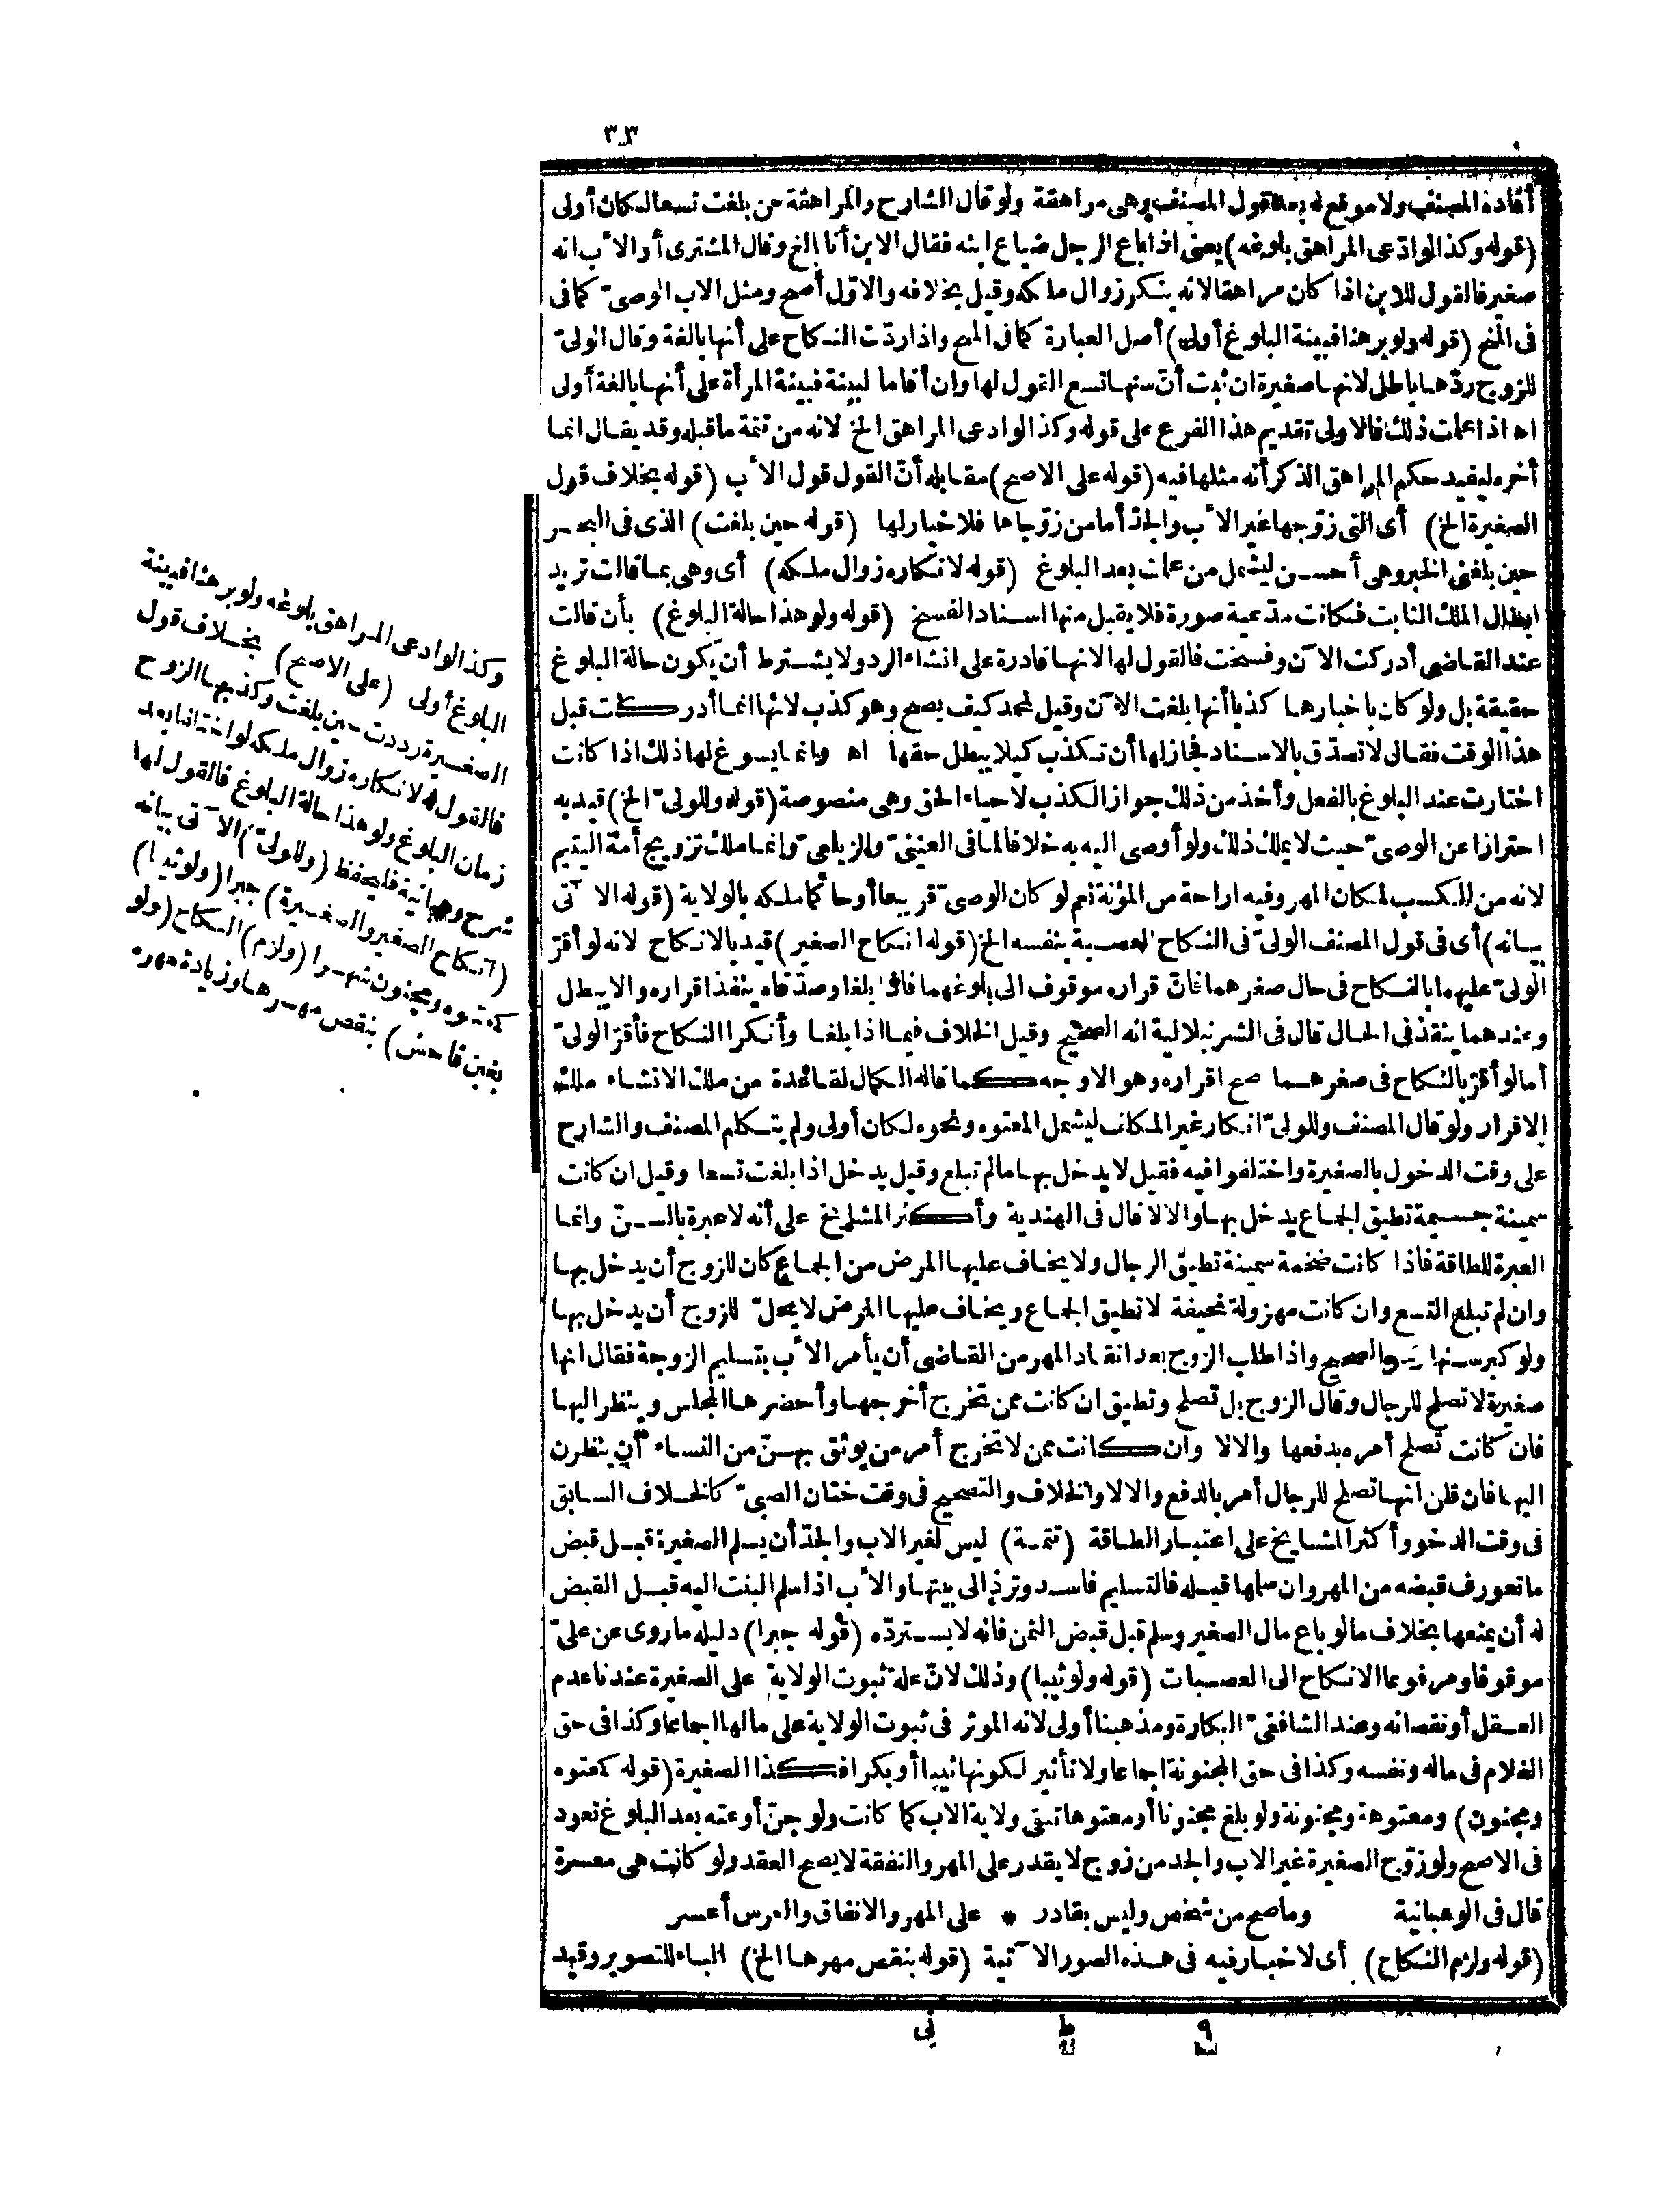 ٣٣
أفاده المصنف ولا موقع له بعد قول المصنف وهى مراهقة ولو قال الشارح والمراهقة من بلغت تسعا لكان أولى
(قوله وكذا لو ادّعى المراهق بلوغه) يعنى اذا باع الرجل ضياع ابنه فقال الابن أنا بالغ وقال المشترى أو الأب انه
صغير فالقول للابن اذا كان مراهقا لانه ينكر زوال ملكه وقيل بخلافه والاوّل أصح ومثل الاب الوصىّ كما فى
فى المنح (قوله ولو برهنا فبينة البلوغ أولى) أصل العبارة كما فى المنح واذا ردّت النكاح على أنها بالغة وقال الولىّ
للزوج ردّها باطل لانها صغيرة ان ثبت أنّ سنها تسع القول لها وان أقاما البينة فبينة المرأة على أنها بالغة أولى
اه اذا علمت ذلك فالاولى تقديم هذا الفرع على قوله وكذا لو ادعى المراهق الخ لانه من تتمة ما قبله وقد يقال انما
أخره ليفيد حكم المراهق الذكر أنه مثلها فيه (قوله على الاصح) مقابله أنّ القول قول الأب (قوله بخلاف قول
الصغيرة الخ) أى التى زوّجها غير الأب والجدّ أما من زوّجاها فلا خيار لها (قوله حين بلغت) الذى فى البحر
حين بلغنى الخبر وهى أحسن ليشمل من علمت بعد البلوغ (قوله لانكاره زوال ملكه) أى وهى بما قالت تريد
ابطال الملك الثابت فكانت مدّعية صورة فلا يقبل منها اسناد الفسخ (قوله ولو هذا حالة البلوغ) بأن قالت
عند القاضى أدركت الآن وفسخت فالقول لها لانها قادرة على انشاء الرد ولا يشترط أن يكون حالة البلوغ
حقيقة بل ولو كان باخبارها كذبا أنها بلغت الآن وقيل لمحمد كيف يصح وهو كذب لانها انما أدركت قبل
هذا الوقت فقال لا تصدّق بالاسناد فجاز لها أن تكذب كيلا يبطل حقها اه وانما يسوغ لها ذلك اذا كانت
اختارت عند البلوغ بالفعل وأخذ من ذلك جواز الكذب لاحياء الحق وهى منصوصة (قوله وللولىّ الخ) قيد به
احترازا عن الوصىّ حيث لا يملك ذلك ولو أوصى اليه به خلافا لما فى العينىّ والزيلعىّ وانما ملك تزويج أمة اليتيم
لانه من المكسب لمكان المهر وفيه اراحة من المؤنة نعم لو كان الوصىّ قريبا أو حاكما ملكه بالولاية (قوله الآتى
بيانه) أى فى قول المصنف الولىّ فى النكاح العصبة بنفسه الخ (قوله انكاح الصغير) قيد بالانكاح لانه لو أقرّ
الولىّ عليهما بالنكاح فى حال صغرهما فانّ قراره موقوف الى بلوغهما فاذا بلغا وصدّقاه ينفذ اقراره والا يبطل
وعندهما ينفذ فى الحال قال فى الشرنبلالية انه الصحيح وقيل الخلاف فيما اذا بلغا وأنكرا النكاح فأقرّ الولىّ
أما لو أقرّ بالنكاح فى صغرهما صح اقراره وهو الاوجه كما قاله الكمال لقاعدة من ملك الانشاء ملك
الاقرار ولو قال المصنف وللولىّ انكار غير المكلف ليشمل المعتوه ونحوه لكان أولى ولم يتكلم المصنف والشارح
على وقت الدخول بالصغيرة واختلفوا فيه فقيل لا يدخل بها ما لم تبلغ وقيل يدخل اذا بلغت تسعا وقيل ان كانت
سمينة جسيمة تطيق الجماع يدخل بها والا لا قال فى الهندية وأكثر المشايخ على أنه لا عبرة بالسنّ وانما
العبرة للطاقة فاذا كانت ضخمة سمينة تطيق الرجال ولا يخاف عليها المرض من الجماع كان للزوج أن يدخل بها
وان لم تبلغ التسع وان كانت مهزولة نحيفة لا تطيق الجماع ويخاف عليها المرض لا يحلّ للزوج أن يدخل بها
ولو كبر سنها وهو الصحيح واذا طلب الزوج بعد انقاد المهر من القاضى أن يأمر الأب بتسليم الزوجة فقال انها
صغيرة لا تصلح للرجال وقال الزوج بل تصلح وتطيق ان كانت ممن تخرج أخرجها وأحضرها المجلس وينظر اليها
فان كانت تصلح أمره بدفعها والا لا وان كانت ممن لا تخرج أمر من يوثق بهنّ من النساء أن ينظرن
اليها فان قلن انها تصلح للرجال أمر بالدفع والا لا والخلاف والتصحيح فى وقت ختان الصبىّ كالخلاف السابق
فى وقت الدخو وأكثر المشايخ على اعتبار الطاقة (تتمة) ليس لغير الاب والجدّ أن يسلم الصغيرة قبل قبض
ما تعورف قبضه من المهر وان سلمها قبله فالتسليم فاسد وتردّ الى بيتها والأب اذا سلم البنت اليه قبل القبض
له أن يمنعها بخلاف ما لو باع مال الصغير وسلم قبل قبض الثمن فانه لا يستردّه (قوله جبرا) دليله ما روى عن علىّ
موقوفا ومرفوعا الانكاح الى العصبات (قوله ولو ثيبا) وذلك لانّ علة ثبوت الولاية على الصغيرة عندنا عدم
العقل أو نقصانه وعند الشافعىّ البكارة ومذهبنا أولى لانه الموثر فى ثبوت الولاية على مالها اجماعا وكذا فى حق
الغلام فى ماله ونفسه وكذا فى حق المجنونة اجماعا ولا تأثير لكونها ثيبا أو بكرا فكذا الصغيرة (قوله كمعتوه
ومجنون) ومعتوهة ومجنونة ولو بلغ مجنونا أو معتوها تبقى ولاية الاب كما كانت ولو جنّ أو عته بعد البلوغ تعود
فى الاصح ولو زوّج الصغيرة غير الاب والجد من زوج لا يقدر على المهر والنفقة لا يصح العقد ولو كانت هى معسرة
قال فى الوهبانية وما صح من شخص وليس بقادر * على المهر والانفاق والعرس أعسر
(قوله ولزم النكاح) أى لا خيار فيه فى هذه الصور الآتية (قوله بنقص مهرها الخ) الباء للتصوير وقيد
٩ ط نى
وكذا لو ادعى المراهق بلوغه ولو برهنا فبينة
البلوغ أولى (على الاصح) بخلاف قول
الصغيرة رددت حين بلغت وكذبها الزوج
فالقول له لانكاره زوال ملكه لو اختلفا بعد
زمان البلوغ ولو هذا حالة البلوغ فالقول لها
شرح وهبانية فليحفظ (وللولىّ) الآتى بيانه
(انكاح الصغير والصغيرة) جبرا (ولو ثيبا)
كمعتوه ومجنون شهرا (ولزم) النكاح (ولو
بغبن فاحش) بنقص مهرها وزيادة مهره